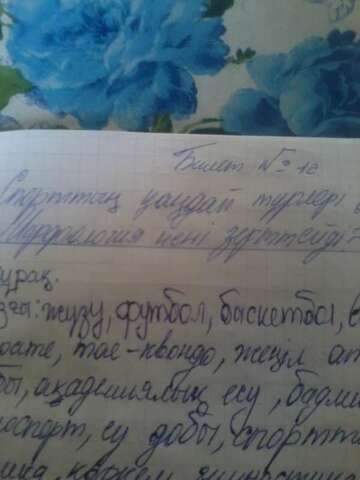 Билет №12
Спорттың қандай түрлері
Морфология нені зерттейді?
ұрақ.
зғы: жүзу, футбол, баскетбол, в
рате, тае-квондо, жеңіл ат
бы, академиялық есу, бадми
оспорт, су добы, спортт
ика, көркем гимнастика